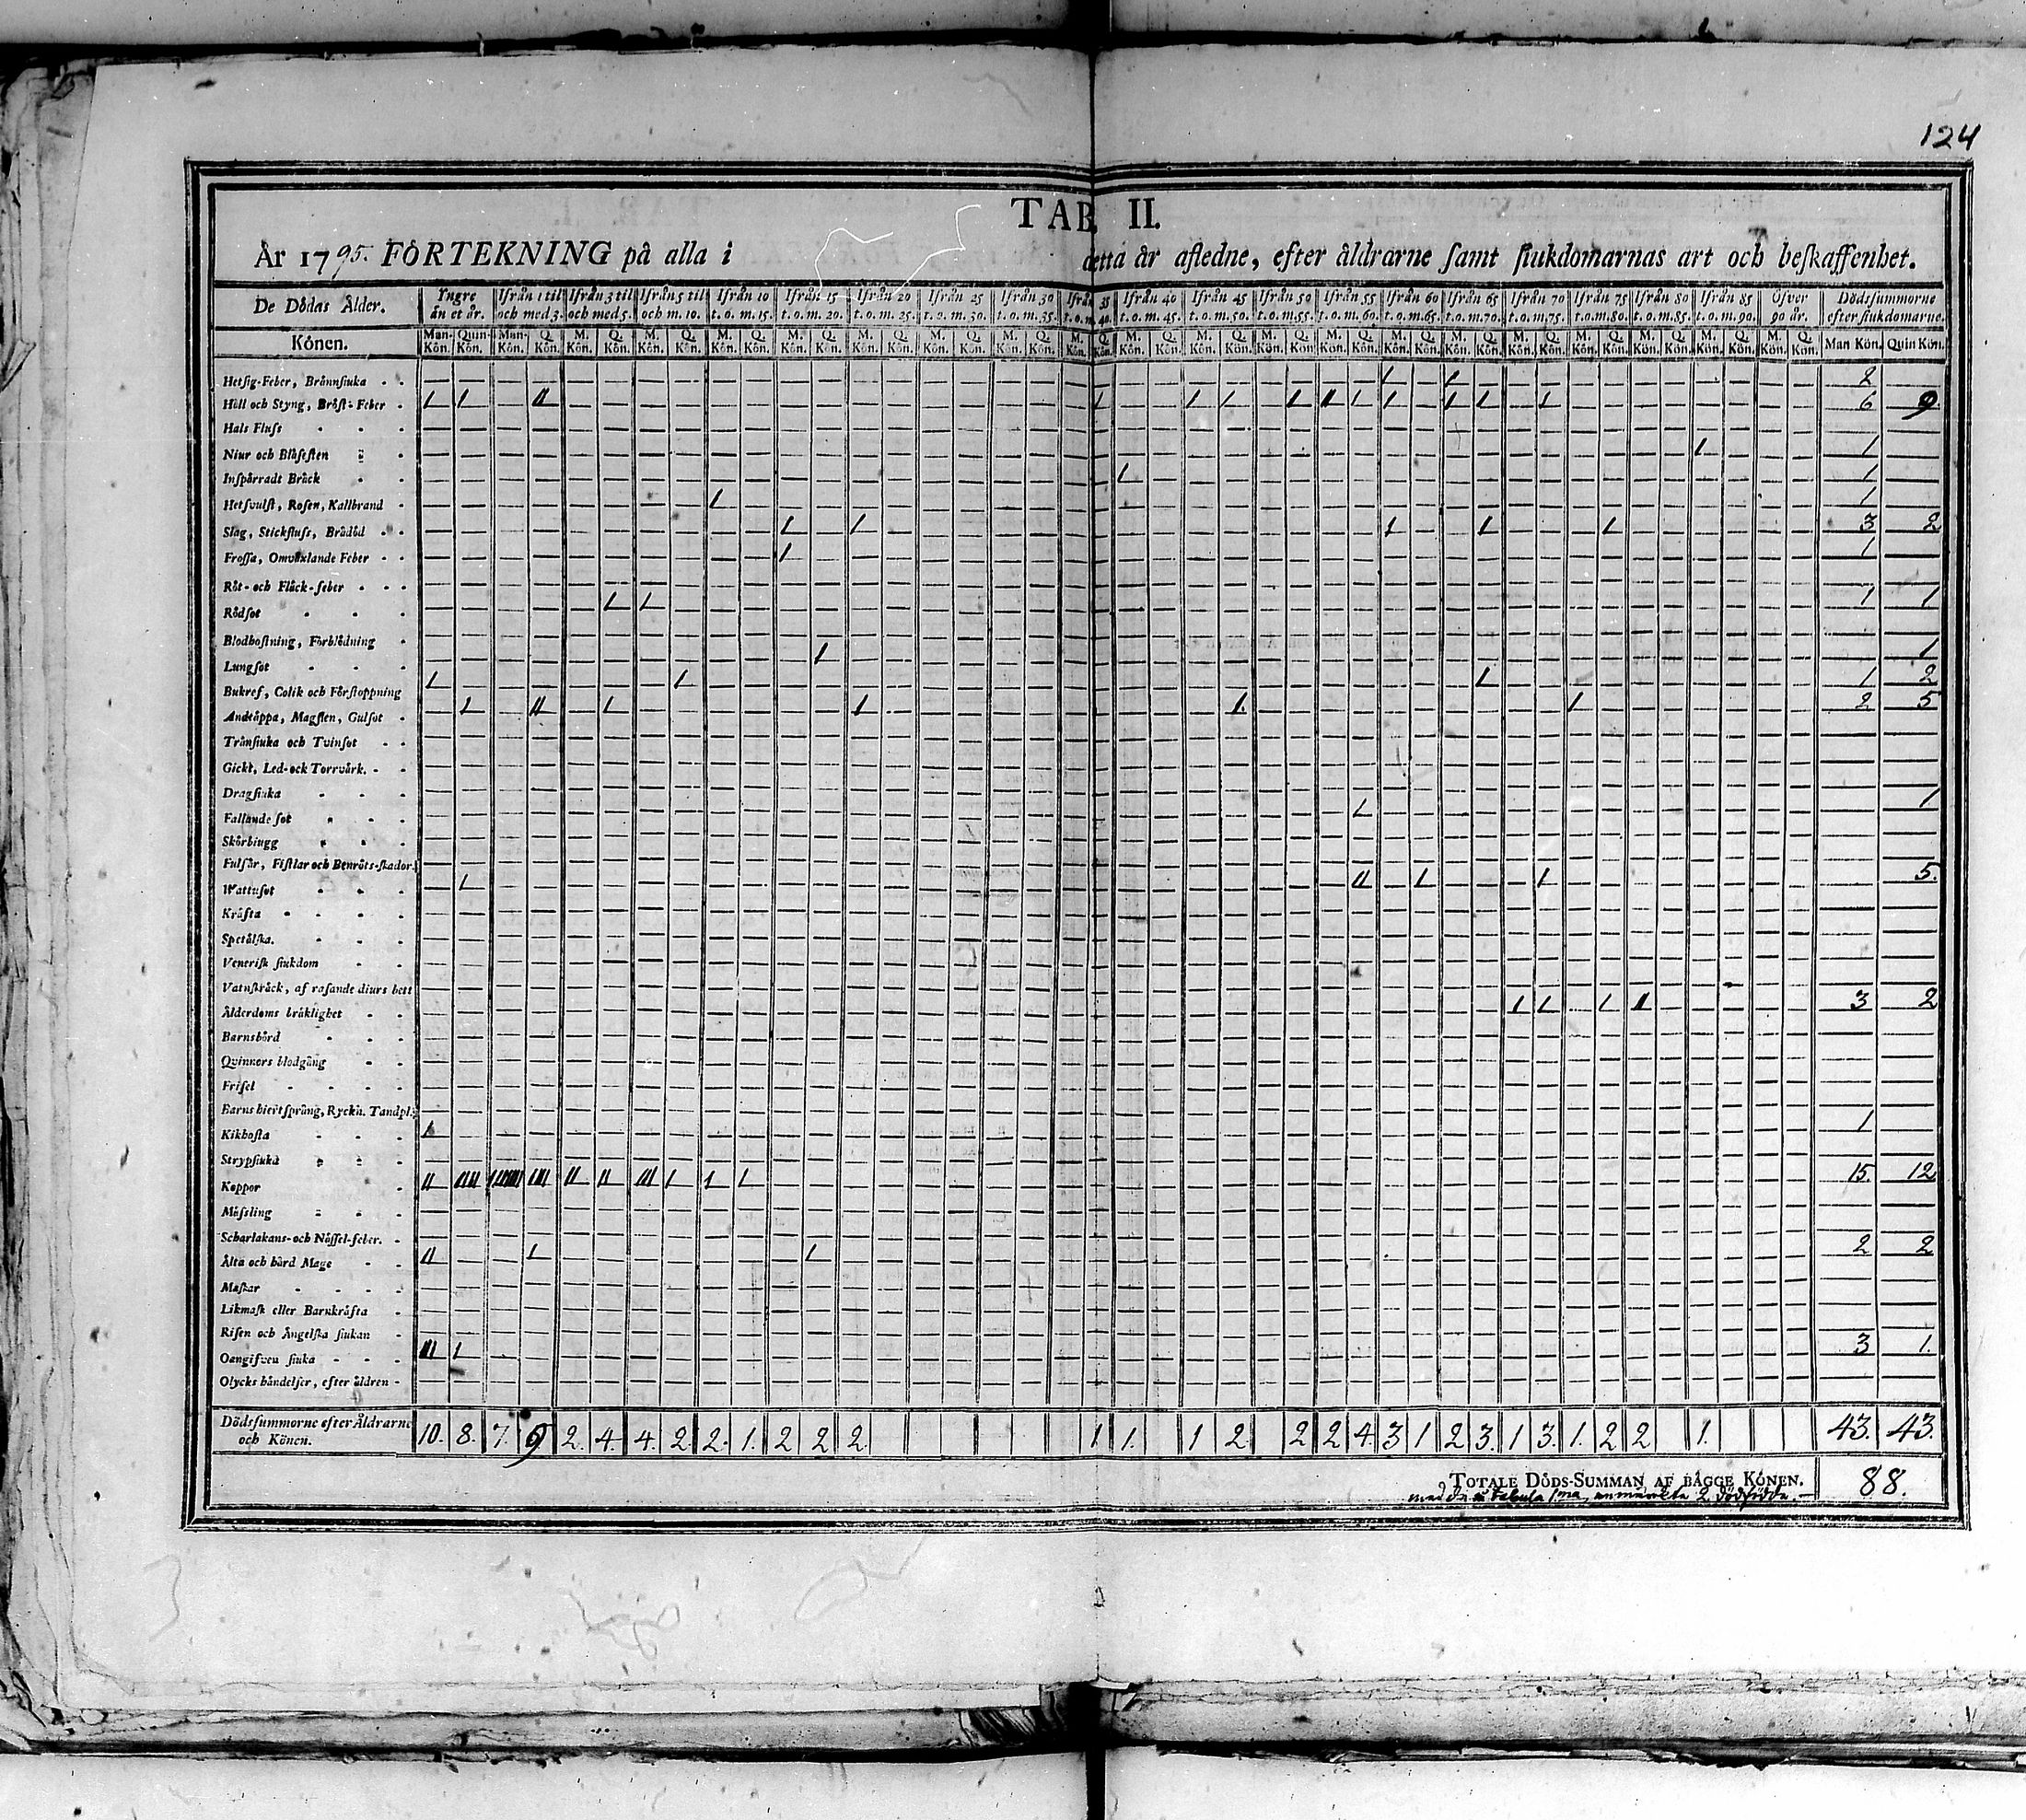 124
TAB. II.
År 1795. FÖRTEKNING på alla i detta år afledne, efter åldrarne samt siukdomarnas art och beskaffenhet.
De Dödas Ålder. Yngre än et år. Ifrån 1 til och med 3. Ifrån 3 til och med 5. Ifrån 5 til och m. 10. Ifrån 10 t. o. m. 15. Ifrån 15 t. o. m. 20. Ifrån 20 t. o. m. 25. Ifrån 25 t. o. m. 30. Ifrån 30 t. o. m. 35. Ifrån 35 t. o. m. 40. Ifrån 40 t. o. m. 45. Ifrån 45 t. o. m. 50. Ifrån 50 t. o. m. 55. Ifrån 55 t. o. m. 60. Ifrån 60 t. o. m. 65. Ifrån 65 t. o. m. 70. Ifrån 70 t. o. m. 75. Ifrån 75 t. o. m. 80. Ifrån 80 t. o. m. 85. Ifrån 85 t. o. m. 90. Öfver 90 år. Dödssummorne efter siukdomarne.
Könen. Man-Kön. Quin-Kön. Man-Kön. Q. Kön. M. Kön. Q. Kön. M. Kön. Q. Kön. M. Kön. Q. Kön. M. Kön. Q. Kön. M. Kön. Q. Kön. M. Kön. Q. Kön. M. Kön. Q. Kön. M. Kön. Q. Kön. M. Kön. Q. Kön. M. Kön. Q. Kön. M. Kön. Q. Kön. M. Kön. Q. Kön. M. Kön. Q. Kön. M. Kön. Q. Kön. M. Kön. Q. Kön. M. Kön. Q. Kön. M. Kön. Q. Kön. M. Kön. Q. Kön. M. Kön. Q. Kön. Man Kön. Quin Kön.
Hetsig-Feber, Brännsiuka 1 1 2
Håll och Styng, Bröst-Feber 1 1 11 1 1 1 1 11 1 1 1 1 1 6 9
Hals Fluss
Niur och Blåsesten 1 1
Inspärradt Bråck 1 1
Hetsvulst, Rosen, Kallbrand 1 1
Slag, Stickfluss, Brådöd 1 1 1 1 1 3 2
Frossa, Omväxlande Feber 1 1
Röt- och Fläck-feber
Rödsot 1 1 1 1
Blodhostning, Förblödning
Lungsot 1 1
Bukref, Colik och Förstoppning 1 1 1 1 2
Andtäppa, Magsten, Gulsot 1 11 1 1 1 1 2 5
Trånsiuka och Tvinsot
Gickt, Led- ock Torrvärk.
Dragsiuka
Fallande sot 1 1
Skörbiugg
Fulsår, Fistlar och Benröts-skador
Wattusot 1 11 1 1 5.
Kräfta
Spetälska.
Venerisk siukdom
Vatnskräck, af rasande diurs bett
Ålderdoms bräklighet 1 1 1 11 3 2
Barnsbörd
Quinners blodgång
Frisel
Barns hiertsprång, Ryckn. Tandpl.
Kikhosta 1 1
Strypsiuka
Koppor 11 1111 1111111 111 11 11 111 1 1 1 15. 12
Mässling
Scharlakans- och Nässel-feber.
Älta och hård Mage 11 1 1 2 2
Maskar
Likmask eller Barnkräfta
Risen och Ängelska siukan
Oangifven siuka 111 1 3 1.
Olycks händelser, efter åldren
Dödssummorne efter Åldrarne och Könen. 10. 8. 7. 9 2. 4. 4. 2. 2. 1. 2 2 2. 1 1. 1 2 2 2 4. 3 1 2 3. 1 3. 1. 2 2 1. 43. 43.
TOTALE DÖDS-SUMMAN AF BÄGGE KÖNEN. 88.
med de i Tabula 1ma anmärkta 2 dödfödda.